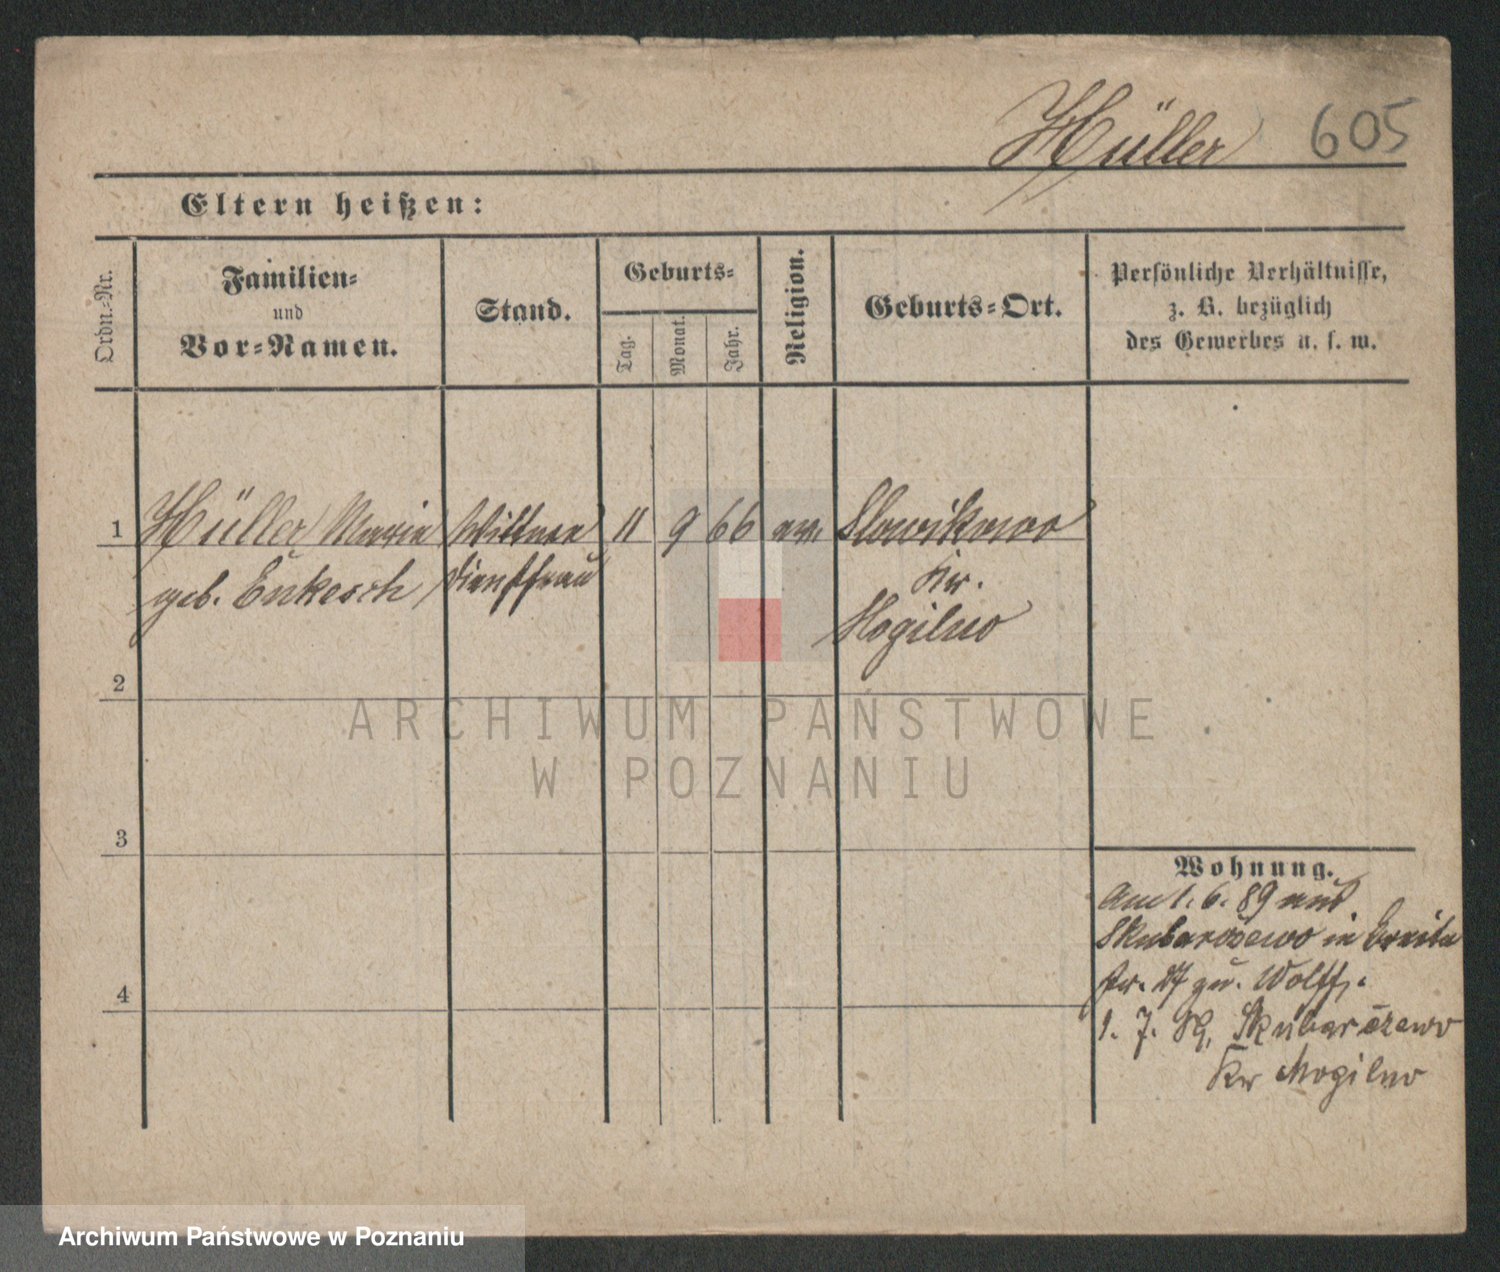 Müller 605
Eltern heißen:
Ordn.-Nr.
Familien-
und
Vor-Namen.
Stand.
Geburts-
Tag.
Monat.
Jahr.
Religion.
Geburts-Ort.
Persönliche Verhältnisse,
z. B. bezüglich
des Gewerbes u. s. w.
1 Müller Marie 11 9 66 ev. Slowikowo
geb. Dienstfrau Kr.
Mogilno
2
3
4
Wohnung.
Am 1. 6. 89 aus
in Breite
str. 17 zu. Wolff.
1. 7. 89, Skubarczewo
Kr Mogilno
ARCHIWUM PAŃSTWOWE
W POZNANIU
Archiwum Państwowe w Poznaniu